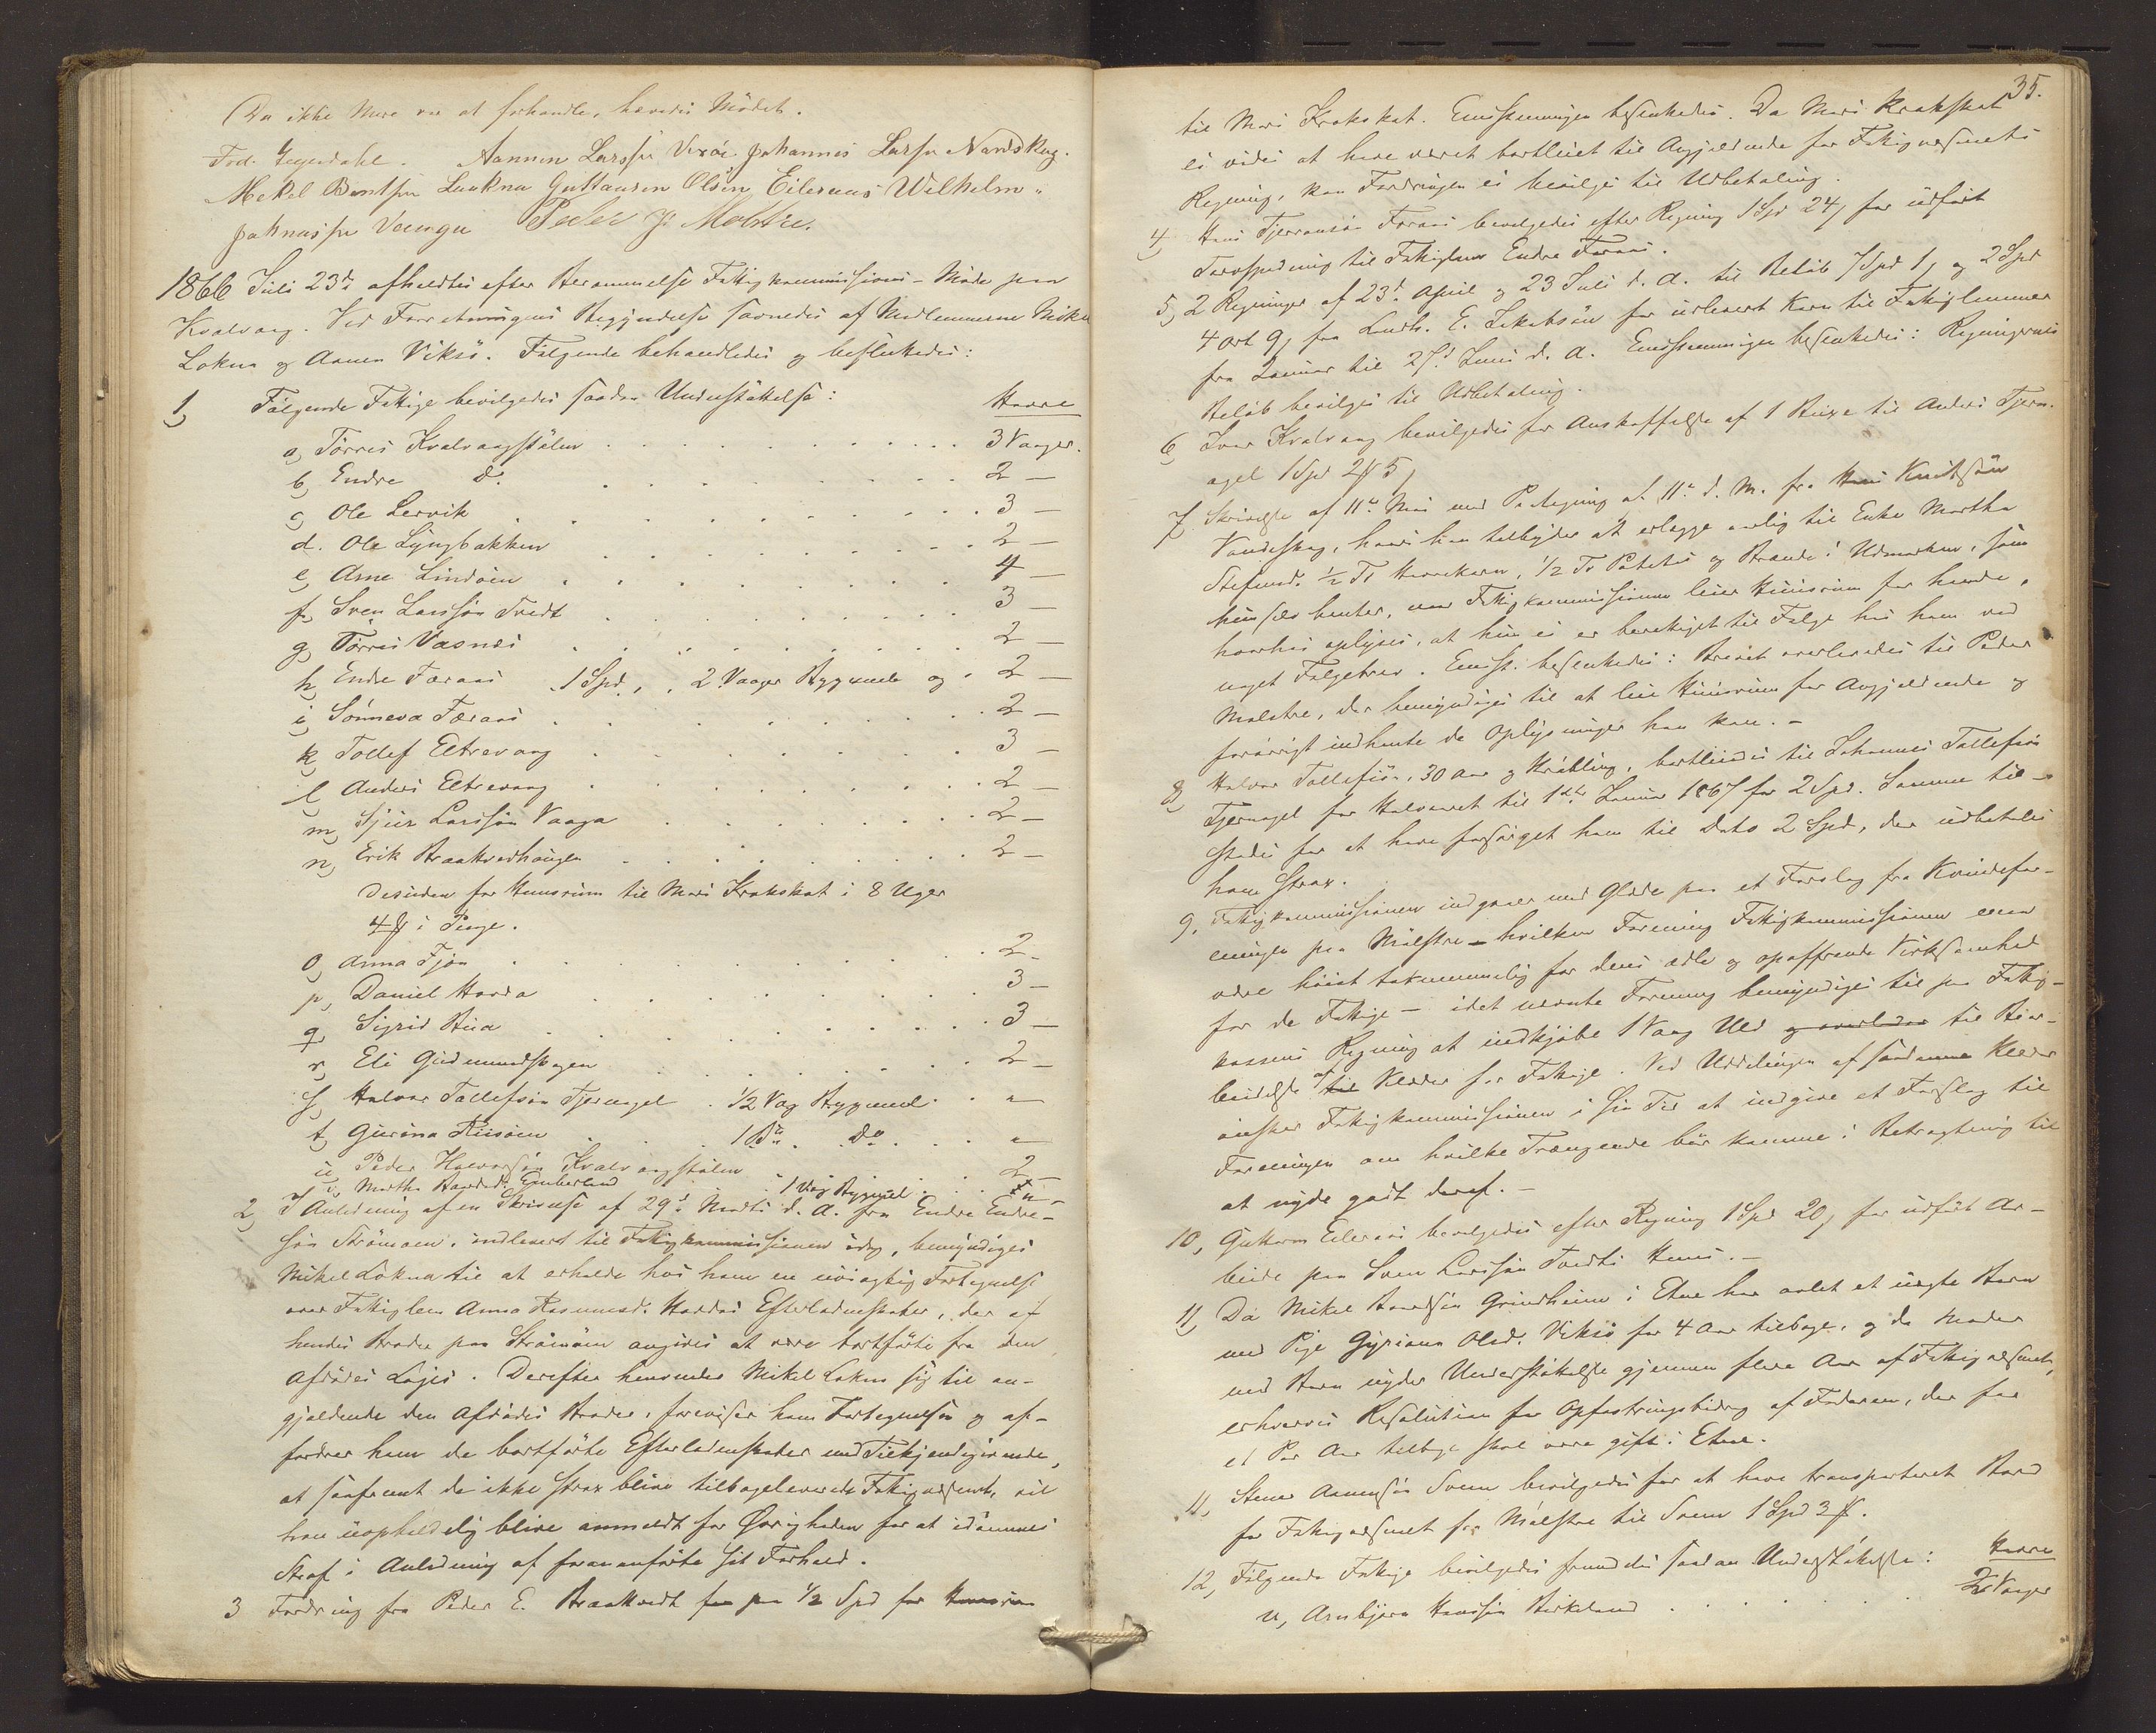 Da ikke Mere var at forhandle, hævedes Mödet.
Aamun Larssn Vixöe Johannes Larssn Nandskog.
Mekel Bentssn Luukna Guttormsen Olsen Eileraas Wilhelm
Johnnessn Vaaga Peder J. Mølstre.
1866 Juli 23de afholdtes efter Berammelse Fattigkommissions-Möde paa
Kvalvaag. Ved Forretningens Begyndelse savnedes af Medlemmerne Mikel
Lokna og Aamun Viksö. Fölgende behandledes og besluttedes:
1) Fölgende Fattige bevilgedes saadan Understöttelse: Havre
a, Törres Kvalvaagstölen 3 Vaager.
b, Endre do. 2 —
c, Ole Lervik 3 —
d. Ole Lyngbakken 2 —
e, Arne Lindöen 4 —
f, Sven Larssön Tvedt 3 —
g, Törres Vasnes 2 —
h, Endre Færaas 1 Spd., 2 Vaager Bygmel og 2 —
i, Sönneva Færaas 2 —
k, Tollef Eltrevaag 3 —
l, Anders Eltrevaag 2 —
m, Sjur Larssön Vaaga 2 —
n, Erik Braatvedhaugen 2 —
Desuden for Huusrum til Mari Krakskat i 8 Uger
4 ß i Penge.
o, Anna Tjön 2 —
p, Daniel Harda 3 —
q, Sigrid Bua 3 —
r, Eli Gudmundskogen 2 —
s, Halvor Tollefsön Tjernagel 1/2 Vog Bygmel "
t, Guröna Risöen 1 do "
u, Peder Halvorssön Kvalvaagstölen 2 —
v, Martha Baardsd. Emberland 1 Vog Bygmel "
2, I Anledning af en Skrivelse af 29de Marts d. A. fra Endre Endre-
sön Strömöen, indlevert til Fattigkommissionen idag, bemyndiges
Mikel Lokna til at erholde hos ham en nöiagtig Fortegnelse
over Fattiglem Anna Rasmusd. Hardas Efterladenskaber, der af
hendes Broder paa Strömöen angives at være bortförte fra den
Afdödes Logis. Derefter henvender Mikel Lokna sig til an-
gjældende den Afdödes Broder, foreviser ham Fortegnelsen og af-
fordrer ham de bortförte Efterladenskaber med Tilkjendegivende,
at saafremt de ikke strax blive tilbageleverede Fattigvæsenet, vil
han uopholdelig blive anmeldt for Øvrigheden for at idömmes
Straf i Anledning af foranförte sit Forhold.
3 Fordring fra Peder E. Braatvedt for paa 1/2 Spd for Huusrum
35.
til Mari Krakskat. Eenstemmigen besluttedes: Da Mari Krakskat
ei vides at have været bortleiet til Angjældende for Fattigvæsenets
Regning, kan Fordringen ei bevilges til Udbetaling.
4, Færaas bevilgedes efter Regning 1 Spd 24 ß for udfört
Torvspadning til Fattiglem Endre Færaas.
5, 2 Regninger af 23de April og 23 Juli d. A. til Belöb 7 Spd 1 ß og 2 Spd
4 ort 9 ß fra Landh. E. Jakobsön for udlevert Korn til Fattiglemmer
fra Januar til 27de Juni d. A. Eenstemmigen besluttedes: Regningernes
Belöb bevilges til Udbetaling.
6, Ivar Kvalvaag bevilgedes for Anskaffelse af 1 Buxe til Anders Tjern-
agel 1 Spd 2 ß 5
7, Skrivelse af 11te Mai med Paategning af 11te d. M. fra Hans Knudssön
Vandeskog, hvori han tilbyder at erlægge aarlig til Enke Martha
Stefensd. 1/2 Td Havrekorn, 1/2 Td Poteter og Brande i Udmarken, som
hun selv henter, naar Fattigkommissionen leier Huusrum for hende,
hvorhos oplyses, at hun ei er berettiget til Folge hos ham ved
noget Folgebrev. Eenst. besluttedes: Brevet overleveredes til Peder
Mølstre, der bemyndiges til at leie Huusrum for Angjældende og
forövrigt indhente de Oplysninger han kan. —
8, Halvor Tollefsön, 30 Aar og Kröbling, bortleiedes til Johannes Tollefsön
Tjernagel for Halvaaret til 1ste Januar 1867 for 2 Spd. Samme til-
stedes for at have forsörget ham til Dato 2 Spd, der udbetales
ham strax.
9. Fattigkommissionen indgaaer med Glæde paa et Forslag fra Kvindefor-
eningen paa Mölstre — hvilken Forening Fattigkommissionen maa
være höist taknemmelig for dens ædle og opoffrende Virksomhed
for de Fattige — idet nævnte Forening bemyndiges til paa Fattig-
kassens Regning at indkjöbe 1 Vaag Uld og overlader til Bear-
beidelse af til Klæder for Fattige. Ved Uddelingen af saadanne Klæder
önsker Fattigkommissionen i sin Tid at indgive et Forslag til
Foreningen om hvilke Trængende bör komme i Betragtning til
at nyde godt deraf. —
10, Guttorm Eileraas bevilgedes efter Regning 1 Spd 20 ß for udfört Ar-
beide paa Sven Larssön Tvedts Huus. —
11, Da Mikel Baardsön Grindheim i Etne har avlet et uægte Barn
med Pige Gyriana Olsd. Viksö for 4 Aar tilbage, og da Moder
med Barn nyder Understöttelse gjennem flere Aar af Fattigvæsenet,
erhverves Resolution for Opfostringsbidrag af Faderen, der for
et Par Aar tilbage skal være gift i Etne.
11, Stener Aamundsön Sveen bevilgedes for at have transporteret Baad
for Fattigvæsenet fra Mölstre til Sveen 1 Spd 3 ß.
12, Fölgende Fattige bevilgedes fremdeles saadan Understöttelse: Havre
u, Arnbjörn Hanssön Birkeland 2 Vaager